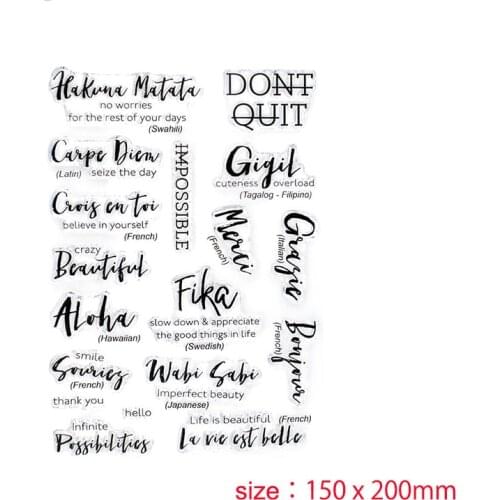 Hakuna Matata
no worries
for the rest of your days
(Swahili)
DONT
QUIT
Carpe Diem
(Latin) seize the day
IMPOSSIBLE
Gigil
cuteness overload
(Tagalog - Filipino)
Crois en toi
believe in yourself
(French)
Merci
(French)
Grazie
(Italian)
crazy
Beautiful
Fika
slow down & appreciate
the good things in life
(Swedish)
Aloha
(Hawaiian)
Bonjour
(French)
smile
Souriez
(French)
Wabi Sabi
Imperfect beauty
(Japanese)
thank you
hello
Life is beautiful (French)
La vie est belle
Infinite
Possibilities
size：150 x 200mm